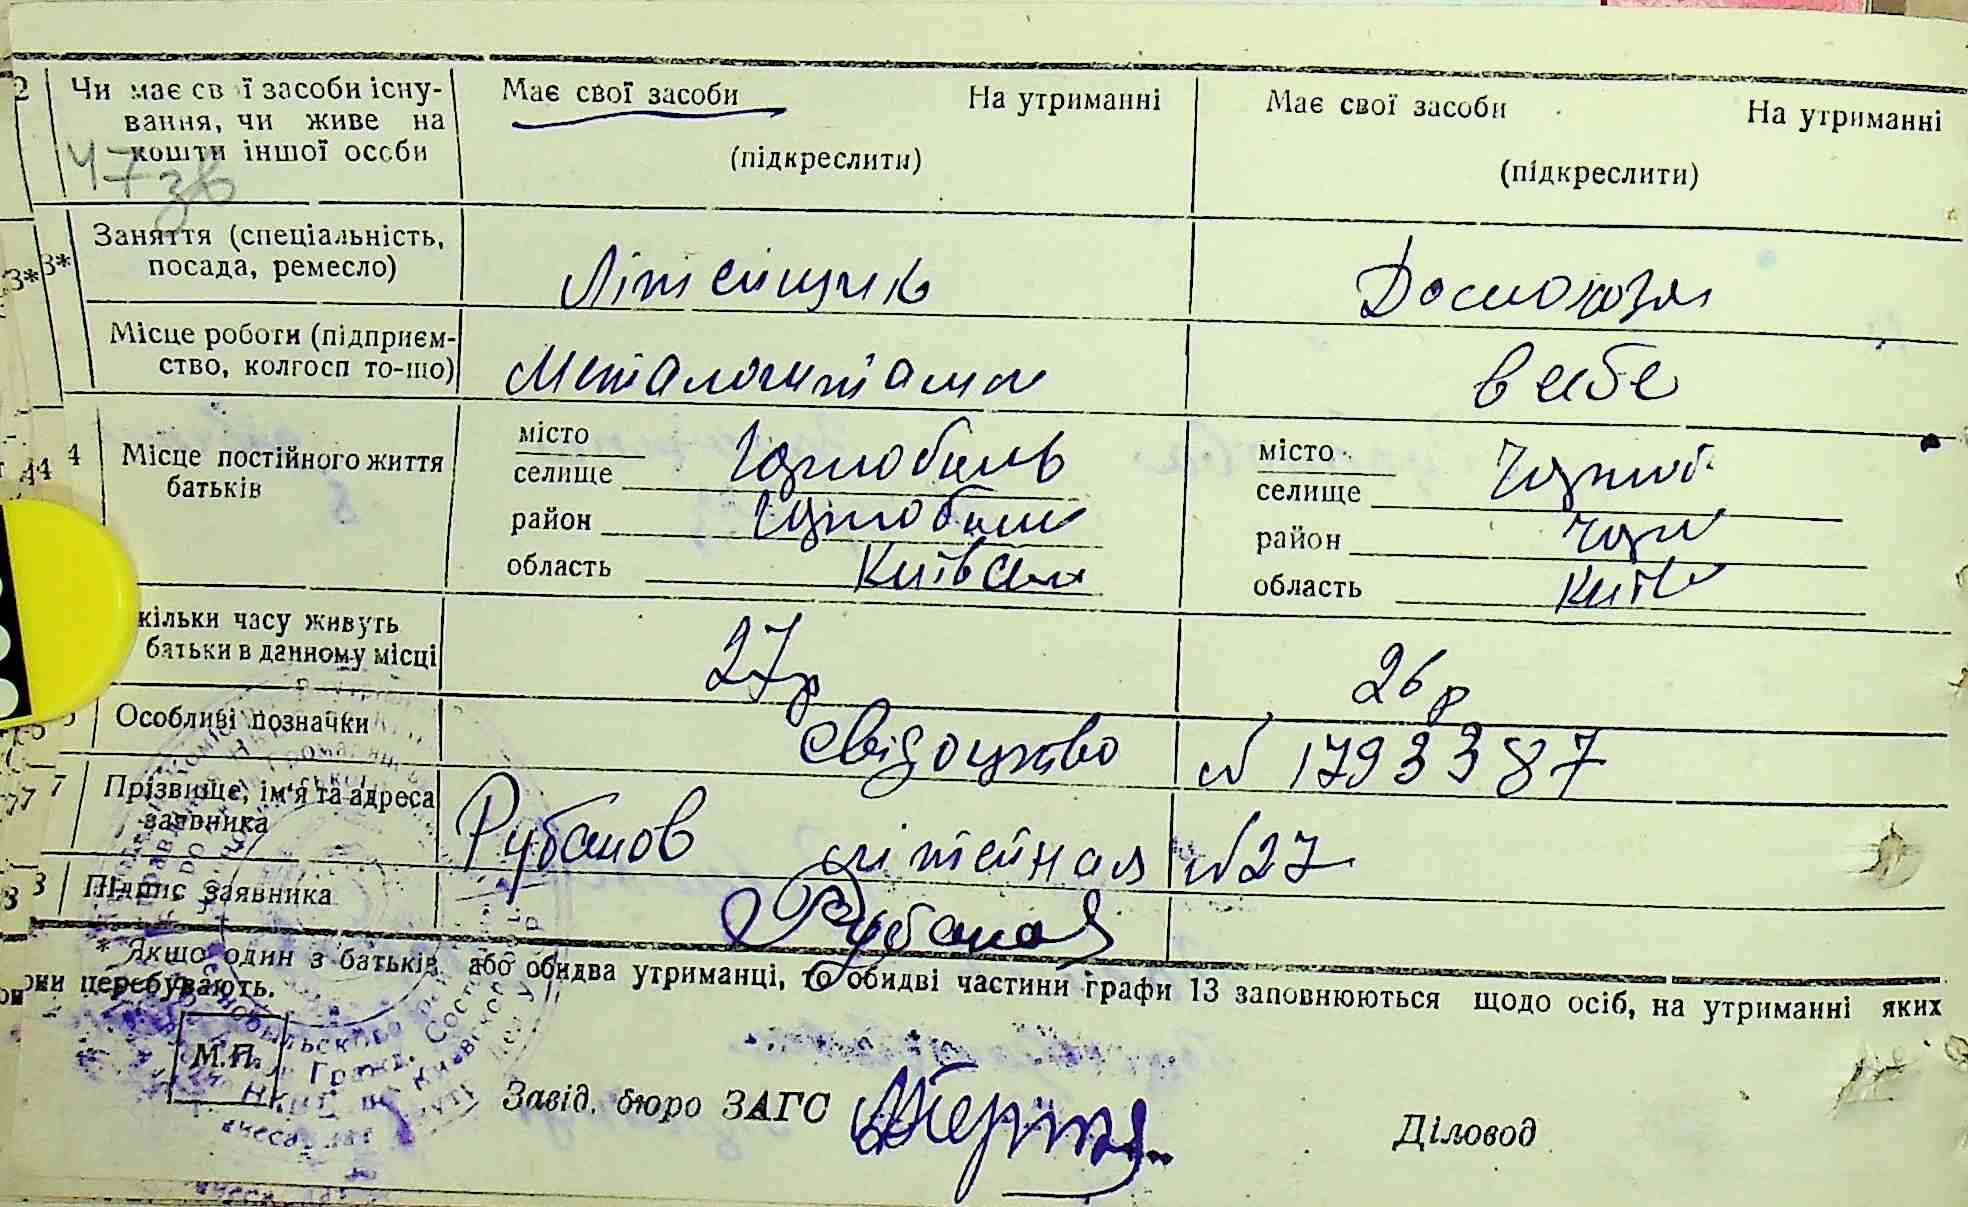 2 Чи має св ї засоби існу- Має свої засоби На утриманні Має свої засоби На утриманні
вання, чи живе на
кошти іншої особи (підкреслити) (підкреслити)
47 зв
3* 3* Заняття (спеціальність,
посада, ремесло) Літейщик Домохозя
Місце роботи (підприєм-
ство, колгосп то-що) в себе
14 4 Місце постійного життя
батьків
місто
селище Чорнобиль
район Чорнобил
область Київськ
місто
селище Чорноб.
район Чорн
область Київ
кільки часу живуть
батьки в данному місці 27 р 26 р
Особливі позначки свідоцтво № 1793387
7 Прізвище, ім'я та адреса
заявника Рубанов літейная № 27
8 3 Підпис заявника Рубанов
* Якщо один з батьків або обидва утриманці, то обидві частини графи 13 заповнюються щодо осіб, на утриманні яких
вони перебувають.
М.П.
Завід. бюро ЗАГС Діловод